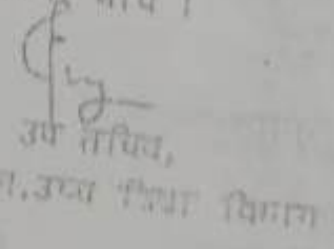 उप सचिव,
उच्च शिक्षा विभाग